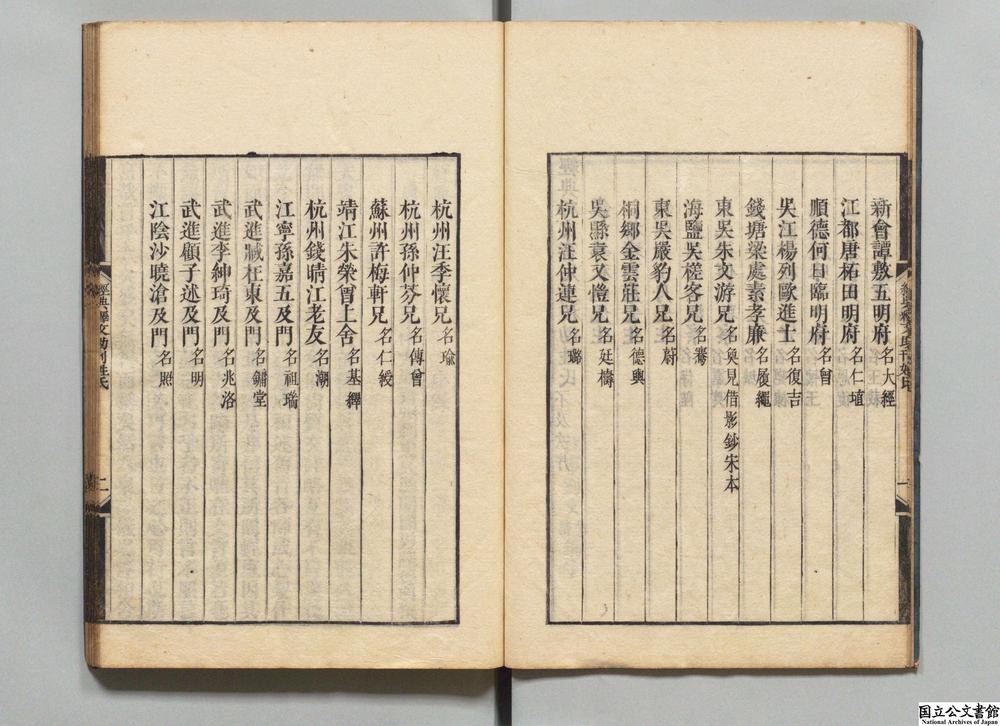 新會譚敷五明府名大經
江都唐柘田明府名仁埴
順德何日臨明府名曾
吳江楊列歐進士名復吉
錢塘梁處素孝廉名履繩
東吳朱文游兄名奐見借影鈔宋本
海鹽吳槎客兄名騫
東吳嚴豹人兄名蔚
桐鄉金雲莊兄名德輿
吳縣袁又愷兄名廷檮
杭州汪仲連兄名璐
杭州汪季懷兄名瑜
杭州孫仲芬兄名傳曾
蘇州許梅軒兄名仁綬
靖江朱榮胄上舍名基釋
杭州錢晴江老友名潮
江寧孫嘉五及門名祖瑞
武進臧在東及門名鏞堂
武進李紳琦及門名兆洛
武進顧子述及門名明
江陰沙曉滄及門名照
經典釋文助刊姓氏
二
国立公文書館
National Archives of Japan